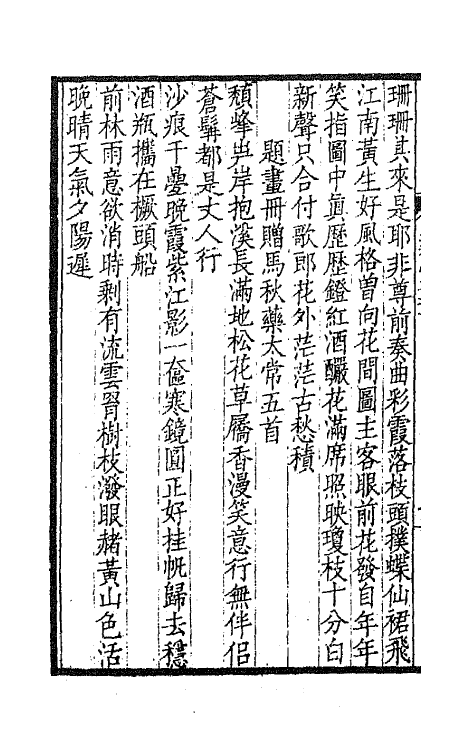 珊珊其來是耶非尊前奏曲彩霞落枝頭撲蝶仙裙飛
江南黃生好風格曾向花間圖主客眼前花發自年年
笑指圖中眞歷歷鐙紅酒釅花滿席照映瓊枝十分白
新聲只合付歌郎花外茫茫古愁積
題畫冊贈馬秋藥太常五首
頽峰屴岸抱溪長滿地松花草屩香漫笑意行無伴侶
蒼髯都是丈人行
沙痕千疊晚霞紫江影一奩寒鏡圓正好挂帆歸去穩
酒瓶攜在橛頭船
前林雨意欲消時剩有流雲罥樹枝潑眼赭黃山色活
晚晴天氣夕陽遲